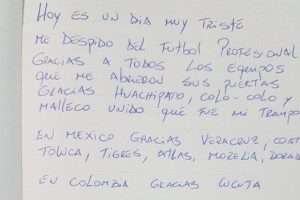 HOY ES UN DIA MUY TRISTE
ME DESPIDO DEL FUTBOL PROFESIONAL
GRACIAS A TODOS LOS EQUIPOS
QUE ME ABRIERON SUS PUERTAS
GRACIAS HUACHIPATO, COLO-COLO Y
MALLECO UNIDO QUE FUE MI
EN MEXICO GRACIAS VERACRUZ,
TOLUCA, TIGRES, ATLAS, MORELIA,
EN COLOMBIA GRACIAS CUCUTA